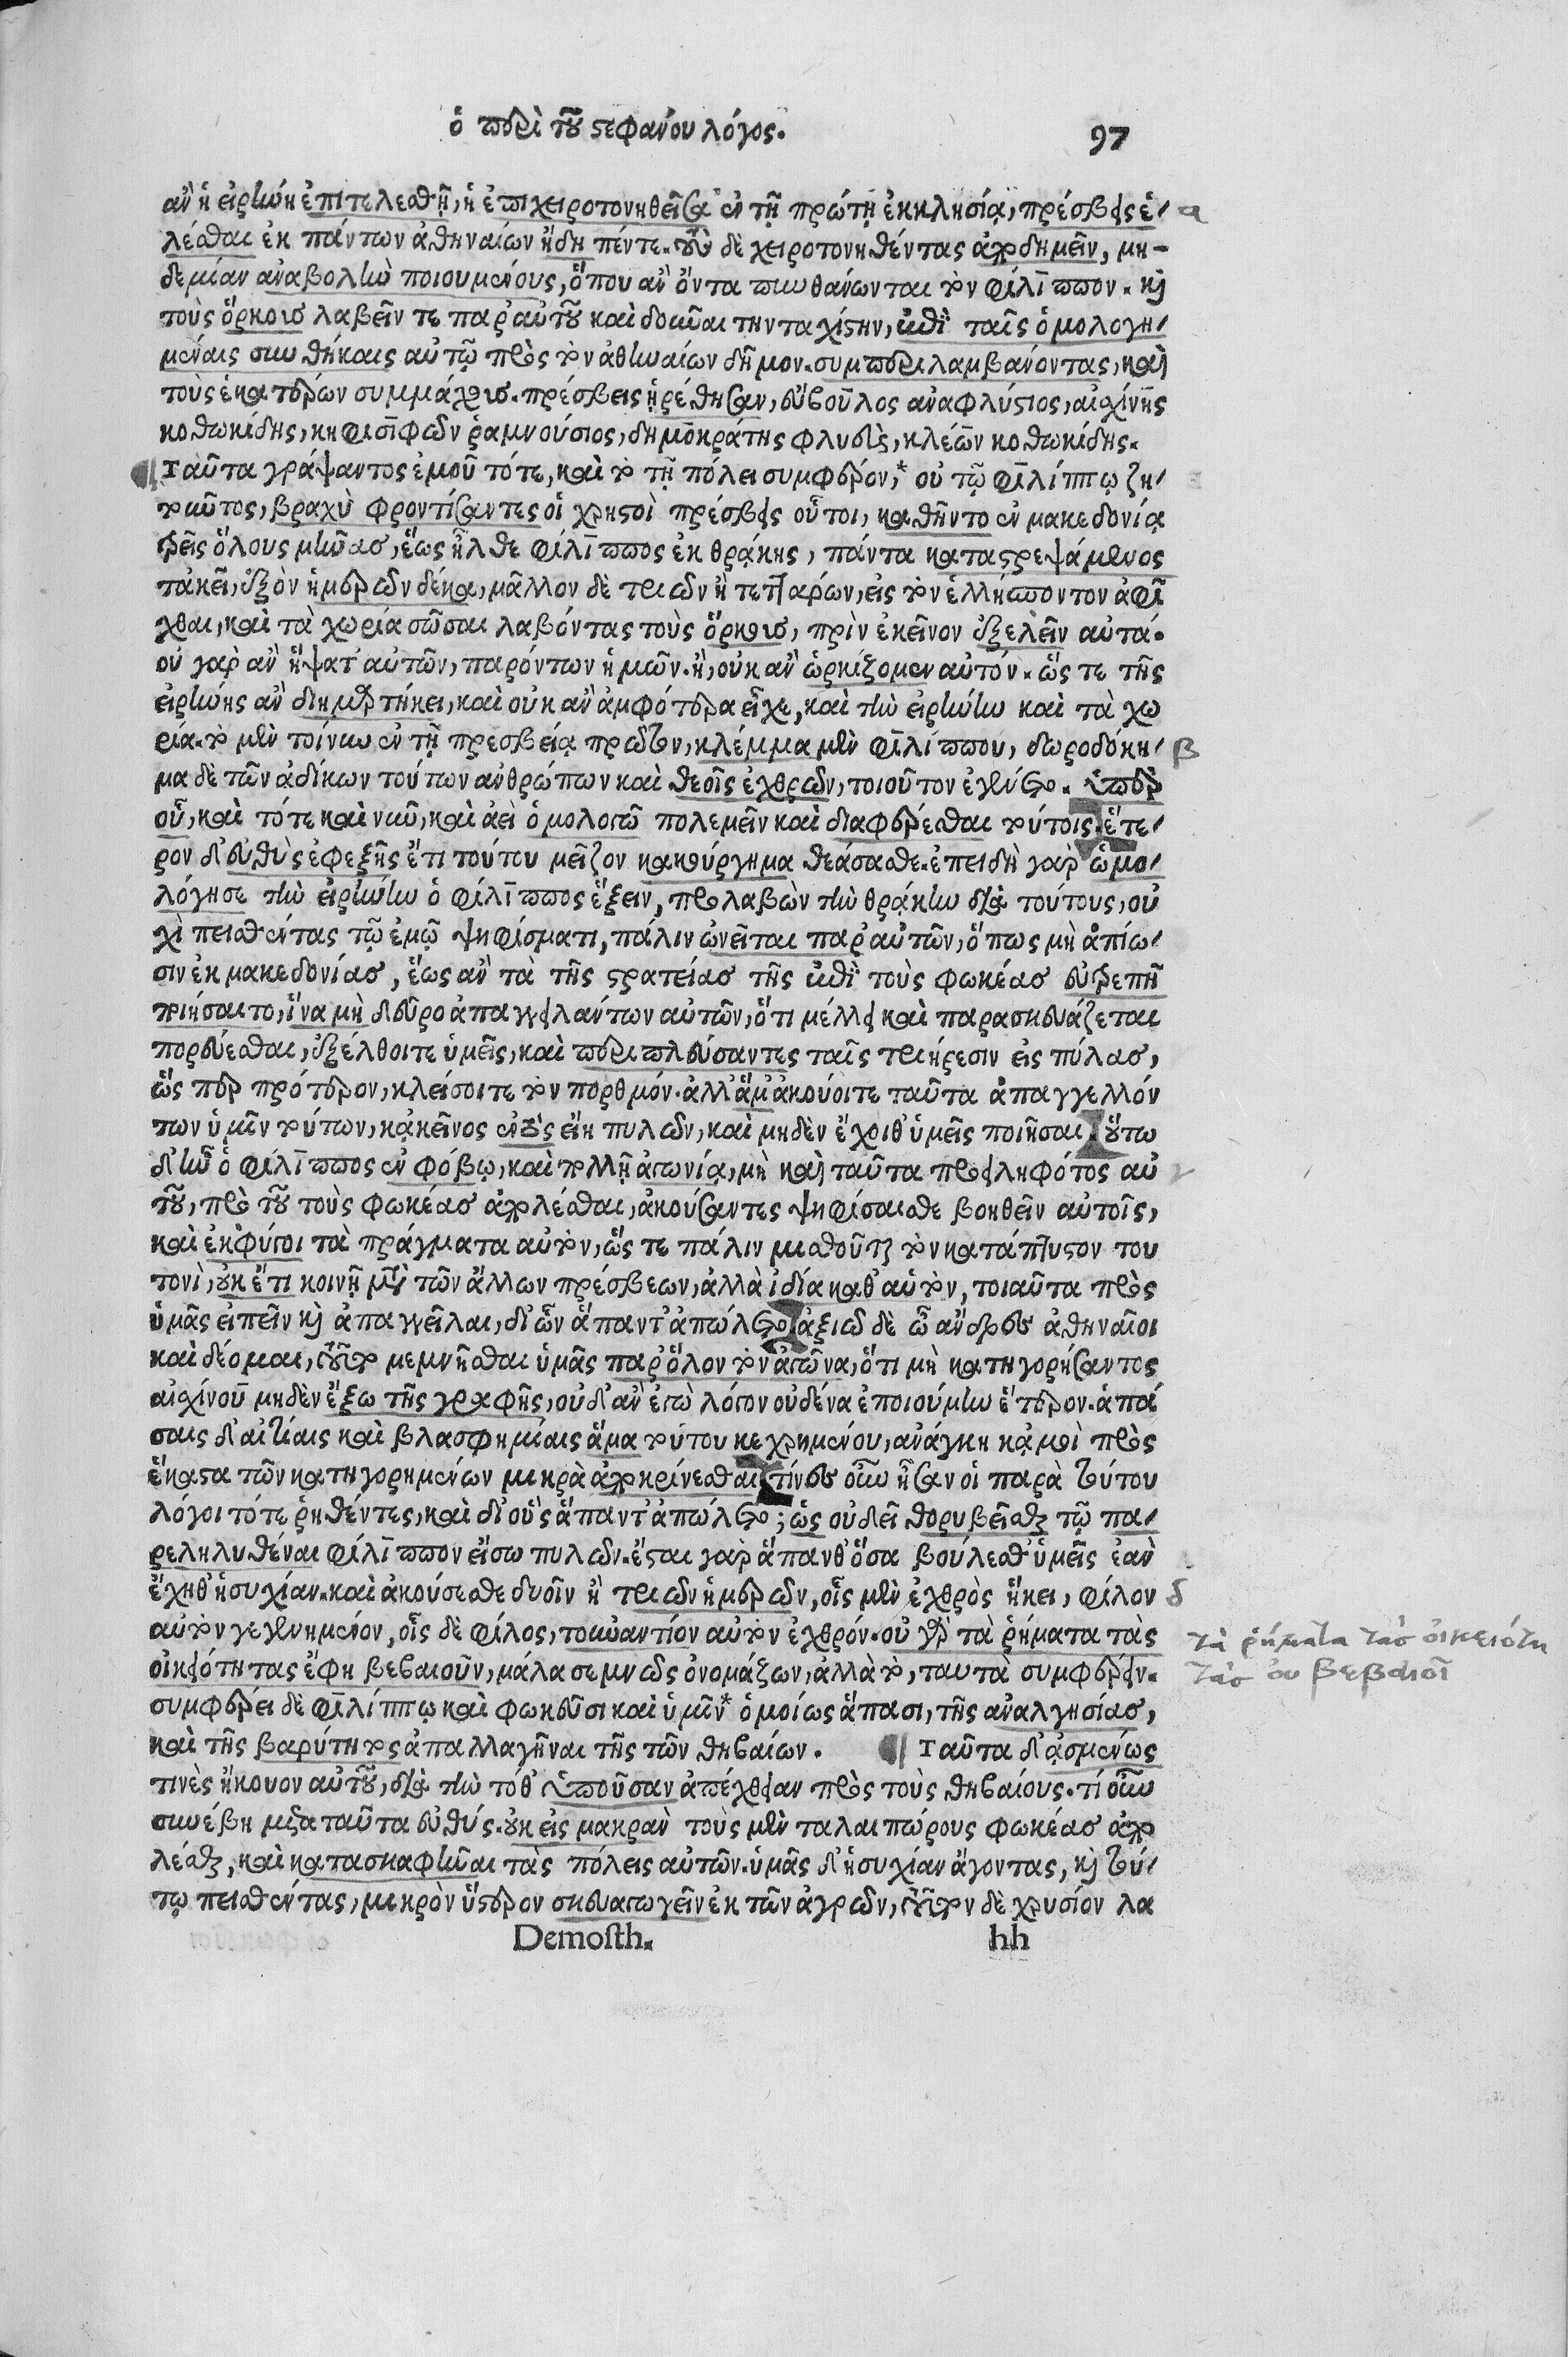 ὁ περὶ τοῦ στεφάνου λόγος.
97
ἂν ἡ εἰρήνη ἐπιτελεσθῇ, ἡ ἐπιχειροτονηθεῖσα ἐν τῇ πρώτῃ ἐκκλησίᾳ, πρέσβεις ἑ-
α
λέσθαι ἐκ πάντων ἀθηναίων ἤδη πέντε. τοὺς δὲ χειροτονηθέντας ἀποδημεῖν, μη-
δεμίαν ἀναβολὴν ποιουμένους, ὅπου ἂν ὄντα πυνθάνωνται τὸν φίλιππον. καὶ
τοὺς ὅρκους λαβεῖν τε παρ' αὐτοῦ καὶ δοῦναι τὴν ταχίστην, ἐπὶ ταῖς ὁμολογη-
μέναις συνθήκαις αὐτῷ πρὸς τὸν ἀθηναίων δῆμον. συμπεριλαμβάνοντας, καὶ
τοὺς ἑκατέρων συμμάχους. πρέσβεις ᾑρέθησαν, εὔβουλος ἀναφλύστιος, αἰσχίνης
κοθωκίδης, κηφισιφῶν ῥαμνούσιος, δημοκράτης φλυεὺς, κλέων κοθωκίδης.
Ταῦτα γράψαντος ἐμοῦ τότε, καὶ τὸ τῇ πόλει συμφέρον,* οὐ τῷ φιλίππῳ ζη-
τοῦντος, βραχὺ φροντίσαντες οἱ χρηστοὶ πρέσβεις οὗτοι, καθῆντο ἐν μακεδονίᾳ
τρεῖς ὅλους μῆνας, ἕως ἦλθε φίλιππος ἐκ θρᾴκης, πάντα καταστρεψάμενος
τἀκεῖ, ἐξὸν ἡμερῶν δέκα, μᾶλλον δὲ τριῶν ἢ τεττάρων, εἰς τὸν ἑλλήσποντον ἀφῖ
χθαι, καὶ τὰ χωρία σῶσαι λαβόντας τοὺς ὅρκους, πρὶν ἐκεῖνον ἐξελεῖν αὐτά.
οὐ γὰρ ἂν ἥψατ' αὐτῶν, παρόντων ἡμῶν. ἢ, οὐκ ἂν ὡρκίζομεν αὐτόν. ὥστε τῆς
εἰρήνης ἂν διημαρτήκει, καὶ οὐκ ἂν ἀμφότερα εἶχε, καὶ τὴν εἰρήνην καὶ τὰ χω
ρία. τὸ μὲν τοίνυν ἐν τῇ πρεσβείᾳ πρῶτον, κλέμμα μὲν φιλίππου, δωροδόκη-
β
μα δὲ τῶν ἀδίκων τούτων ἀνθρώπων καὶ θεοῖς ἐχθρῶν, τοιοῦτον ἐγένετο. ὑπὲρ
οὗ, καὶ τότε καὶ νῦν, καὶ ἀεὶ ὁμολογῶ πολεμεῖν καὶ διαφέρεσθαι τούτοις. ἕτε-
ρον δ' εὐθὺς ἐφεξῆς ἔτι τούτου μεῖζον κακούργημα θεάσασθε. ἐπειδὴ γὰρ ὡμο-
λόγησε τὴν εἰρήνην ὁ φίλιππος ἕξειν, προλαβὼν τὴν θρᾴκην διὰ τούτους, οὐ
χὶ πεισθέντας τῷ ἐμῷ ψηφίσματι, πάλιν ὠνεῖται παρ' αὐτῶν, ὅπως μὴ ἀπίω-
σιν ἐκ μακεδονίας, ἕως ἂν τὰ τῆς στρατείας τῆς ἐπὶ τοὺς φωκέας εὐτρεπῆ
ποιήσαιτο, ἵνα μὴ δεῦρο ἀπαγγειλάντων αὐτῶν, ὅτι μέλλει καὶ παρασκευάζεται
πορεύεσθαι, ἐξέλθοιτε ὑμεῖς, καὶ περιπλεύσαντες ταῖς τριήρεσιν εἰς πύλας,
ὥσπερ πρότερον, κλείσοιτε τὸν πορθμόν. ἀλλ' ἅμ' ἀκούοιτε ταῦτα ἀπαγγελλόν
των ὑμῖν τούτων, κἀκεῖνος ἐντὸς εἴη πυλῶν, καὶ μηδὲν ἔχοιθ' ὑμεῖς ποιῆσαι. οὕτω
δ' ἦν ὁ φίλιππος ἐν φόβῳ, καὶ πολλῇ ἀγωνίᾳ, μὴ καὶ ταῦτα προειληφότος αὐ
γ
τοῦ, πρὸ τοῦ τοὺς φωκέας ἀπολέσθαι, ἀκούσαντες ψηφίσαισθε βοηθεῖν αὐτοῖς,
καὶ ἐκφύγοι τὰ πράγματα αὐτὸν, ὥστε πάλιν μισθοῦται τὸν κατάπτυστον του
τονὶ, οὐκ ἔτι κοινῇ μετὰ τῶν ἄλλων πρέσβεων, ἀλλὰ ἰδία καθ' αὑτὸν, τοιαῦτα πρὸς
ὑμᾶς εἰπεῖν καὶ ἀπαγγεῖλαι, δι' ὧν ἅπαντ' ἀπώλετο. ἀξιῶ δὲ ὦ ἄνδρες ἀθηναῖοι
καὶ δέομαι, τοῦτο μεμνῆσθαι ὑμᾶς παρ' ὅλον τὸν ἀγῶνα, ὅτι μὴ κατηγορήσαντος
αἰσχίνου μηδὲν ἔξω τῆς γραφῆς, οὐδ' ἂν ἐγὼ λόγον οὐδένα ἐποιούμην ἕτερον. ἁπά
σαις δ' αἰτίαις καὶ βλασφημίαις ἅμα τούτου κεχρημένου, ἀνάγκη κἀμοὶ πρὸς
ἕκαστα τῶν κατηγορημένων μικρὰ ἀποκρίνεσθαι. τίνες οὖν ἦσαν οἱ παρὰ τούτου
λόγοι τότε ῥηθέντες, καὶ δι' οὓς ἅπαντ' ἀπώλετο; ὡς οὐ δεῖ θορυβεῖσθαι τῷ πα-
ρεληλυθέναι φίλιππον εἴσω πυλῶν. ἔσται γὰρ ἅπανθ' ὅσα βούλεσθ' ὑμεῖς ἐὰν
ἔχηθ' ἡσυχίαν. καὶ ἀκούσεσθε δυοῖν ἢ τριῶν ἡμερῶν, οἷς μὲν ἐχθρὸς ἥκει, φίλον
δ
αὐτὸν γεγενημένον, οἷς δὲ φίλος, τοὐναντίον αὐτὸν ἐχθρόν. οὐ γὰρ τὰ ῥήματα τὰς
οἰκειότητας ἔφη βεβαιοῦν, μάλα σεμνῶς ὀνομάζων, ἀλλὰ τὸ, ταυτὰ συμφέρειν.
τὰ ῥήματα τὰσ οἰκειότη
τὰσ οὐ βεβαιοῖ
συμφέρει δὲ φιλίππῳ καὶ φωκεῦσι καὶ ὑμῖν* ὁμοίως ἅπασι, τῆς ἀναλγησίας,
καὶ τῆς βαρύτητος ἀπαλλαγῆναι τῆς τῶν θηβαίων. Ταῦτα δ' ἀσμένως
τινὲς ἤκουον αὐτοῦ, διὰ τὴν τόθ' ὑποῦσαν ἀπέχθειαν πρὸς τοὺς θηβαίους. τί οὖν
συνέβη μετὰ ταῦτα εὐθύς. οὐκ εἰς μακρὰν τοὺς μὲν ταλαιπώρους φωκέας ἀπο
λέσθαι, καὶ κατασκαφῆναι τὰς πόλεις αὐτῶν. ὑμᾶς δ' ἡσυχίαν ἄγοντας, καὶ τού-
τῳ πεισθέντας, μικρὸν ὕστερον σκευαγωγεῖν ἐκ τῶν ἀγρῶν, τοῦτον δὲ χρυσίον λα
Demosth. hh